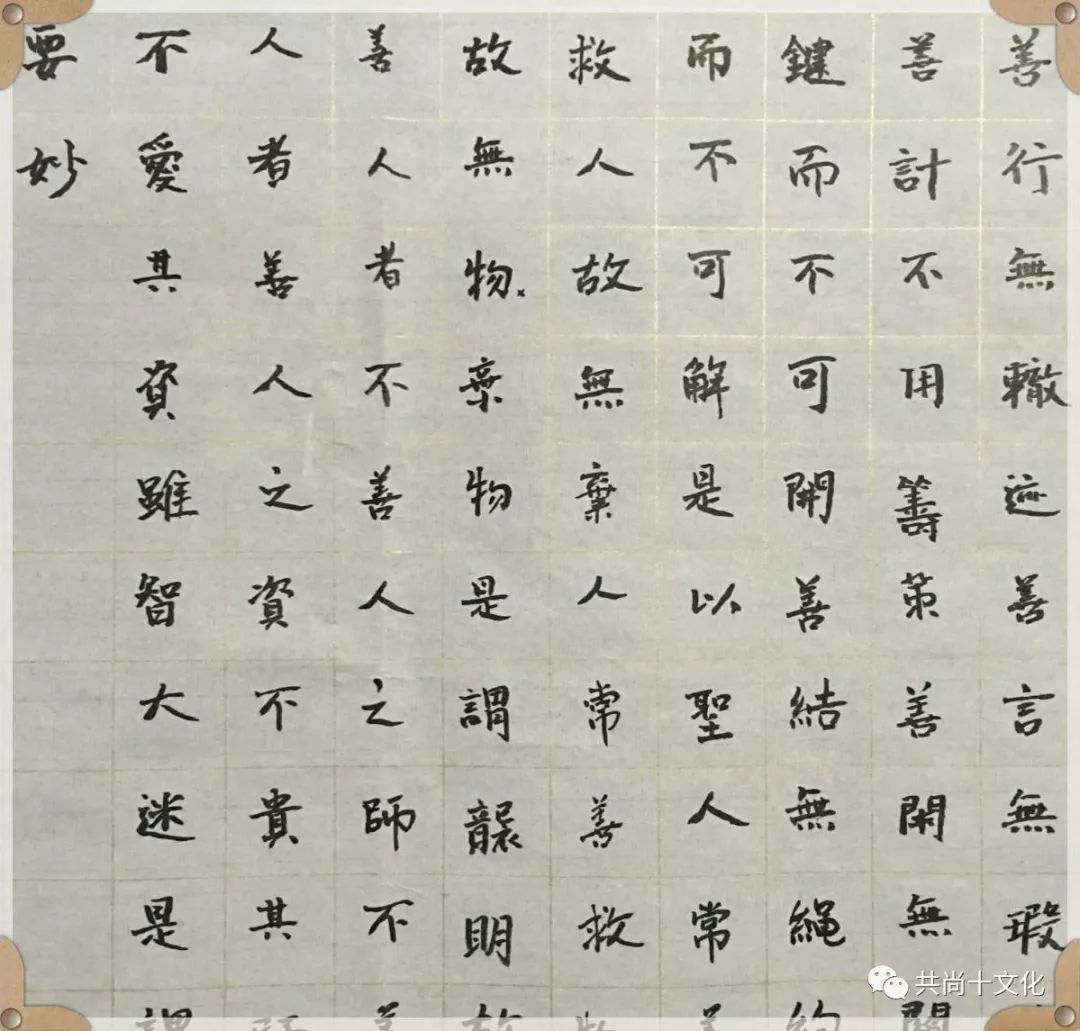 善行無轍迹善言無瑕
善計不用籌策善閉無關
鍵而不可開善結無繩約
而不可解是以聖人常善
救人故無棄人常善救物
故無物棄物是謂襲明故
善人者不善人之師不善
人者善人之資不貴其師
不愛其資雖智大迷是謂
要妙
共尚十文化